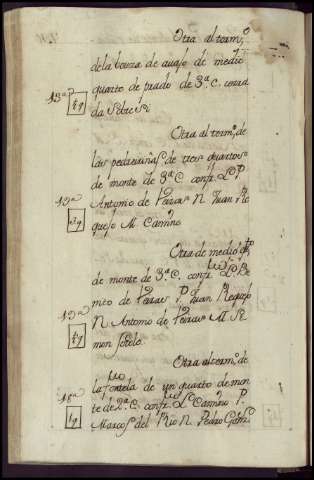 Otra al term.º
de la bouza de avajo de medio
quarto de prado de 3.ª C. cerra
da sobre si
Otra al term.º de
las pedreiriñas de tres quartos
de monte de 3.ª C. confr. L. P.
Antonio de Pazos N. Juan Re
quejo M. Camino
Otra de medio q.to
de monte de 3.ª C. confr. L.
de Pazos P. Juan Requejo
N. Antonio de Pazos M. Si
mon
Otra al term.º de
la Portela de un quarto de mon
te de 2.ª C. confr. L. Camino P.
Marcos del Rio N. Pedro